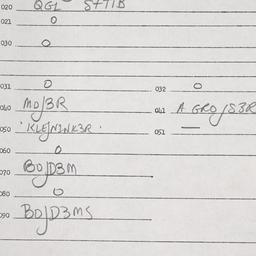 020 QG1 S771B
021 O
030 O
031 O 032 O
040 MO/3R 041 A GRO/S3R
050 'KLEJNJNK3R' 051 —
060 O
070 BOJD3M
080 O
090 BOJD3MS